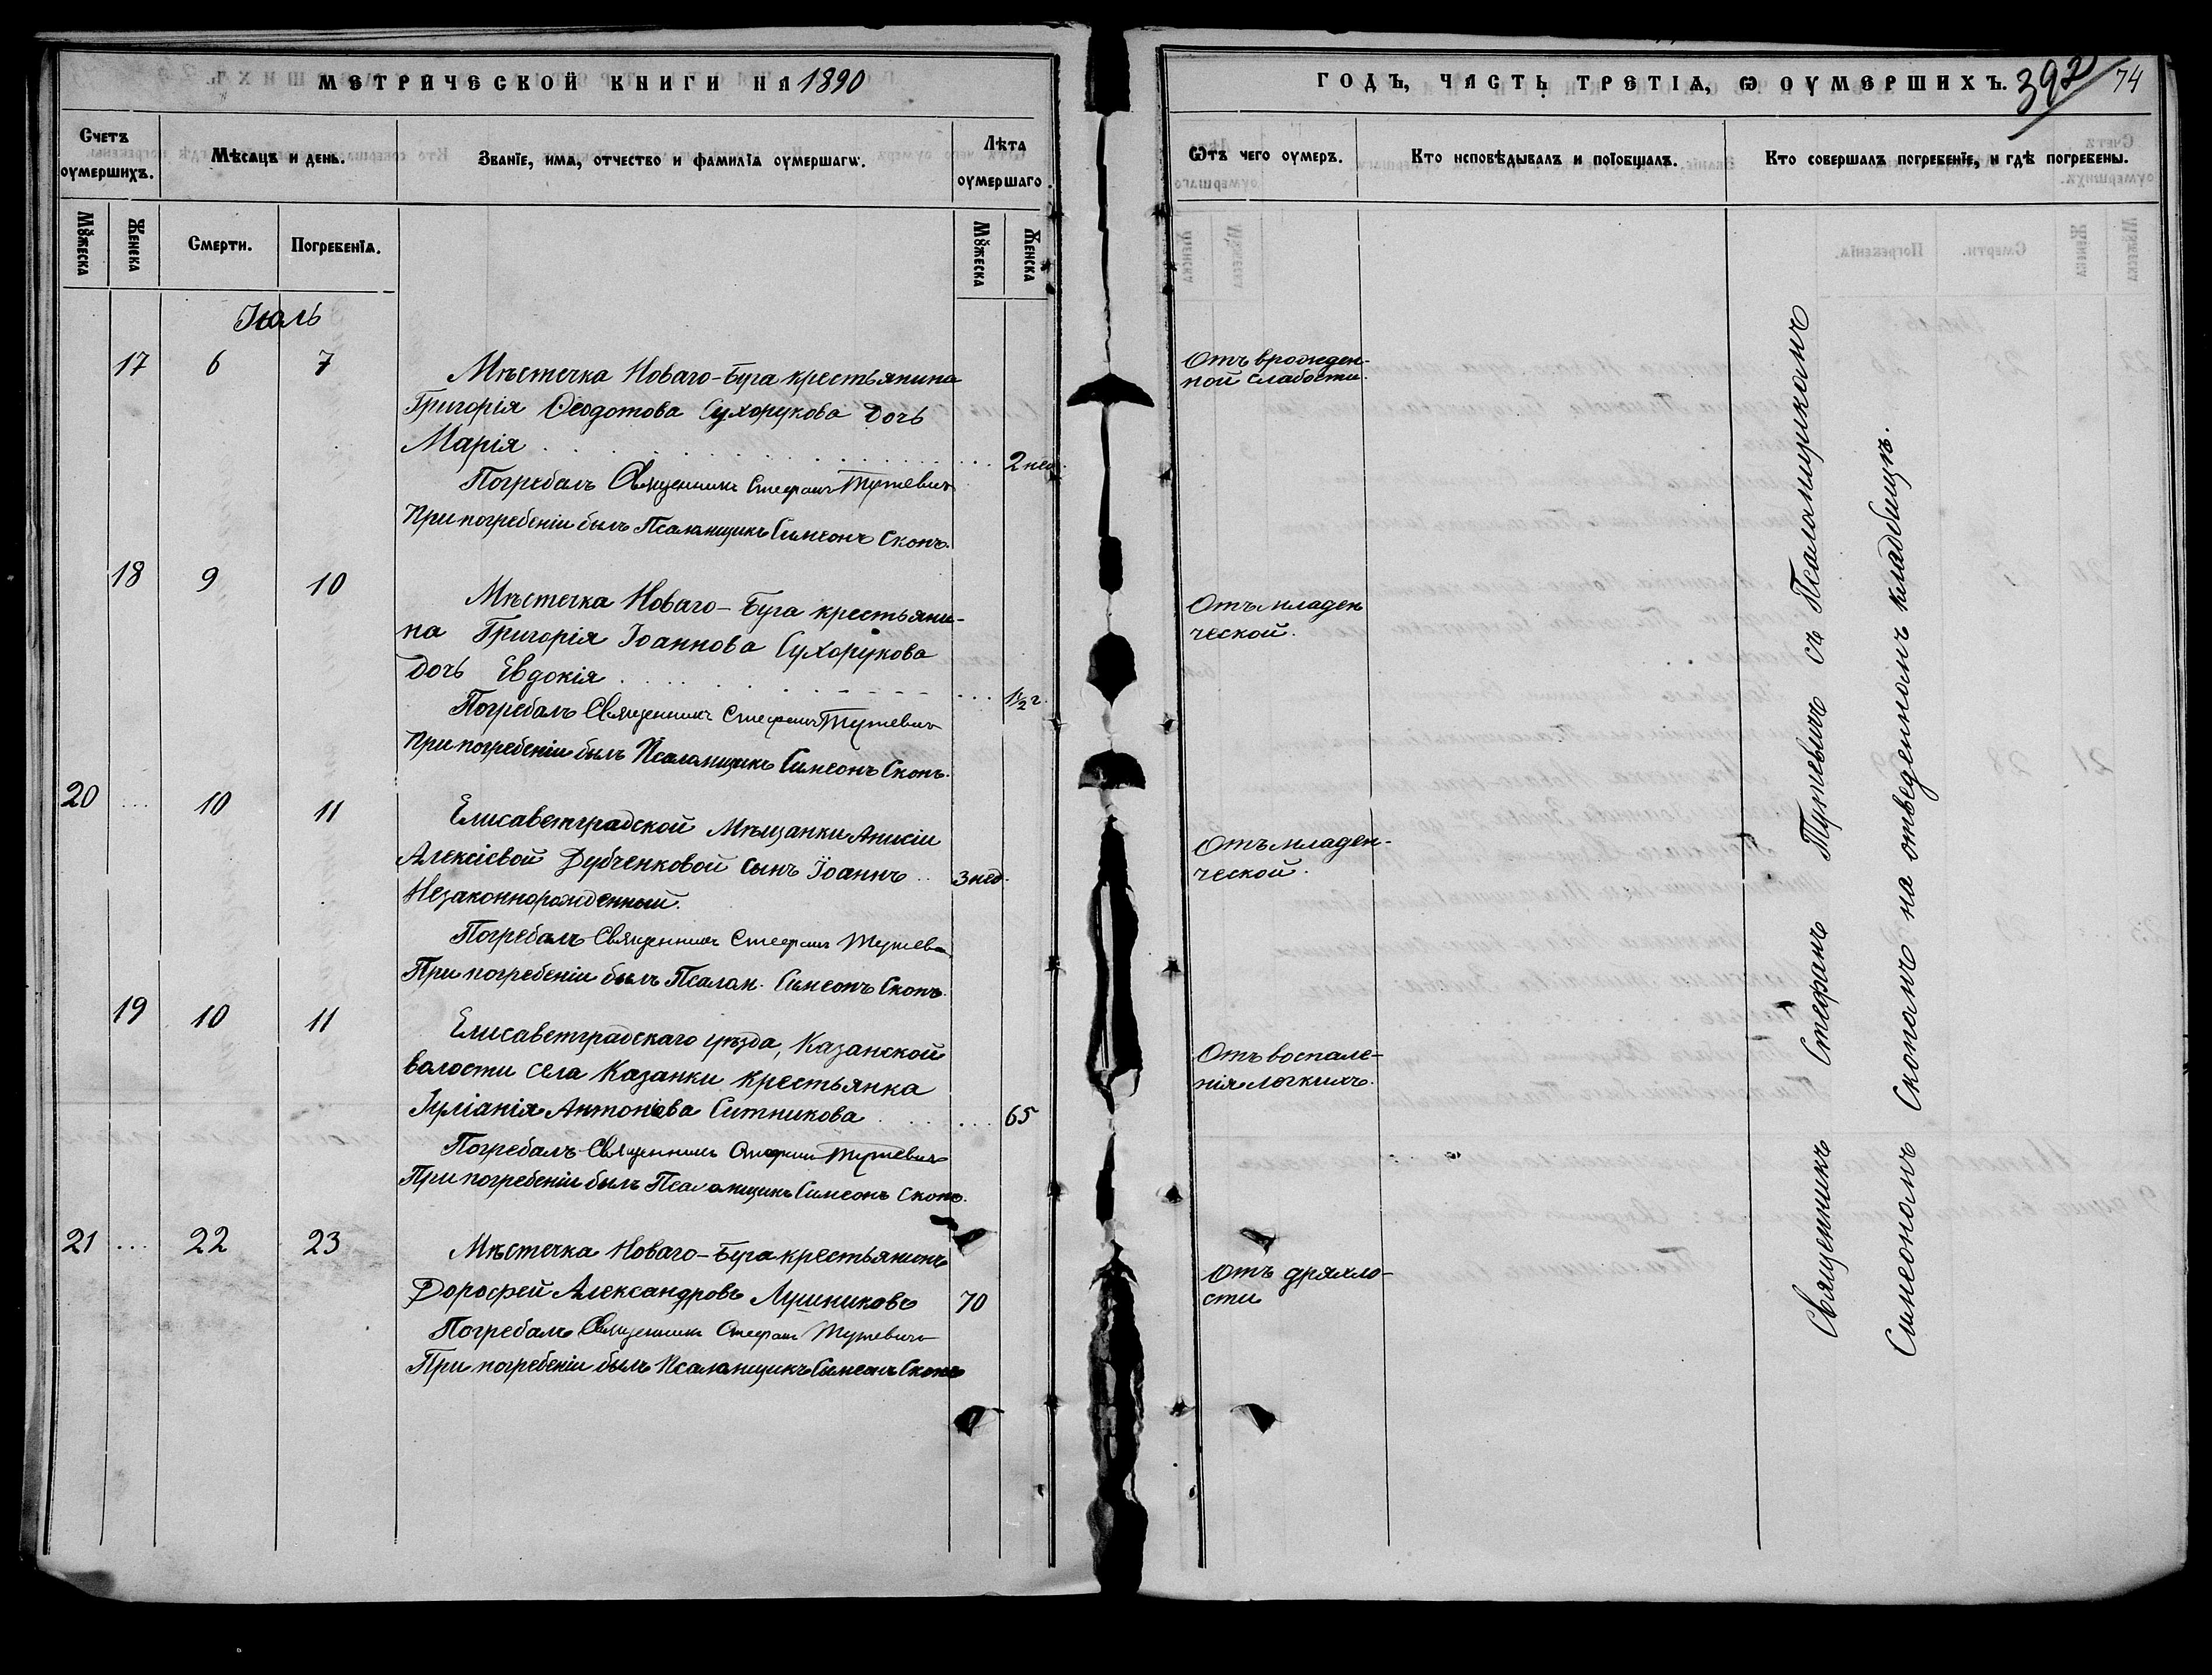 МЕТРИЧЕСКОЙ КНИГИ НА 1890
Счетъ оумершихъ.
Мѣсяцъ и день.
Званіе, имя, отчество и фамилія оумершагѡ.
Лѣта оумершаго.
Мꙋжеска
Женска
Смерти.
Погребенія.
Мꙋжеска
Женска
Іюль
17 6 7
Мѣстечка Новаго-Буга крестьянина
Григорія Ѳеодотова Сухорукова дочь
Марія 2 нед.
Погребалъ Священникъ Стефанъ Тутевичъ
При погребеніи былъ Псаломщикъ Симеонъ Скопъ.
18 9 10
Мѣстечка Новаго-Буга крестьяни-
на Григорія Іоаннова Сухорукова
дочь Евдокія 1½ г.
Погребалъ Священникъ Стефанъ Тутевичъ
При погребеніи былъ Псаломщикъ Симеонъ Скопъ.
20 ... 10 11
Елисаветградской Мѣщанки Анисіи
Алексіевой Дубченковой сынъ Іоаннъ .. 3 нед.
Незаконнорожденный.
Погребалъ Священникъ Стефанъ
При погребеніи былъ Псалом. Симеонъ Скопъ.
19 10 11
Елисаветградскаго уѣзда, Казанской
волости села Казанки крестьянка
Іуліанія Антонова Ситникова 65
Погребалъ Священникъ Стефанъ Тутевичъ
При погребеніи былъ Псаломщикъ Симеонъ Скопъ.
21 ... 22 23
Мѣстечка Новаго-Буга крестьянинъ
Дорофей Александровъ Лушниковъ 70
Погребалъ Священникъ Стефанъ Тутевичъ
При погребеніи былъ Псаломщикъ Симеонъ Скопъ
ГОДЪ, ЧАСТЬ ТРЕТІЯ, Ѡ ОУМЕРШИХЪ. 392 74
Ѿтъ чего оумеръ.
Кто исповѣдывалъ и пріобщалъ.
Кто совершалъ погребеніе, и гдѣ погребены.
Отъ врожден-
ной слабости.
Отъ младен
ческой.
Отъ младен-
ческой.
Отъ воспале-
нія легкихъ.
Отъ дряхло-
сти
Священникъ Стефанъ Тутевичъ съ Псаломщикомъ
Симеономъ Скопомъ на отведенномъ кладбищѣ.